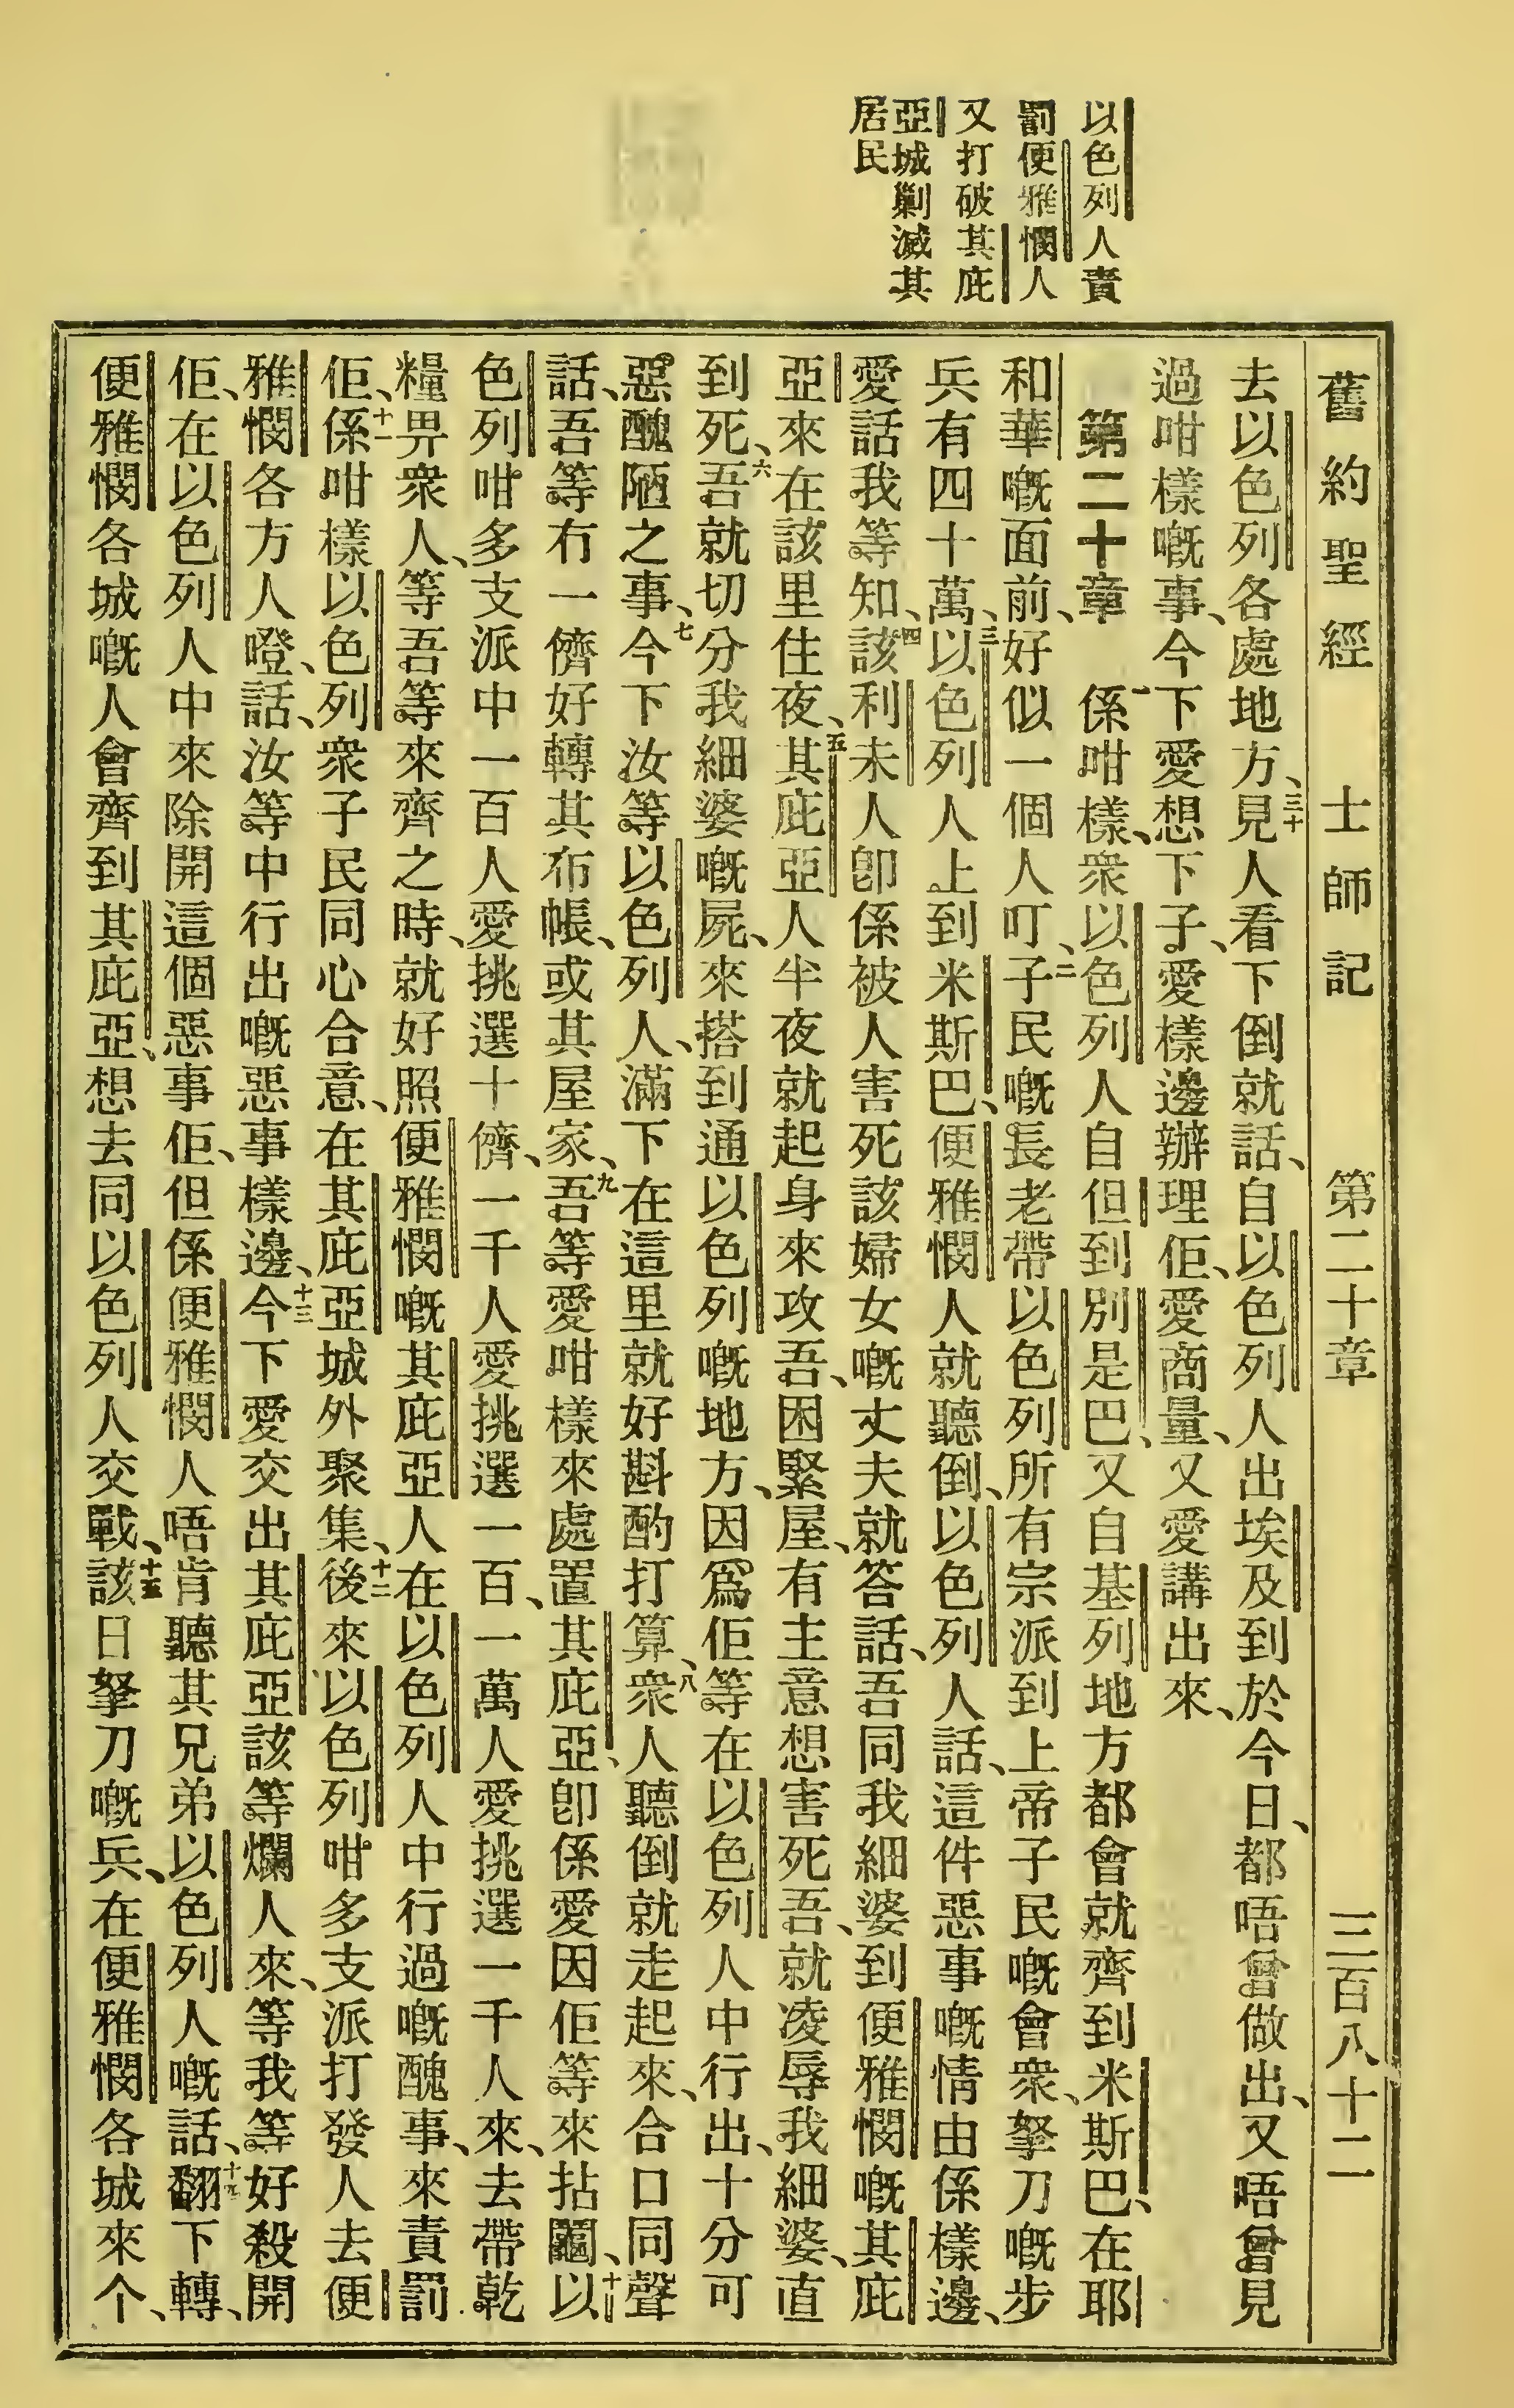 以色列人責
罰便雅憫人
又打破其庇
亞城剿滅其
居民
舊約聖經 士師記 第二十章 三百八十二
去以色列各處地方、三十見人看下倒就話、自以色列人出埃及到於今日、都唔曾做出、又唔曾見
過咁樣嘅事、今下愛想下子、愛樣邊辦理佢、愛商量、又愛講出來、
第二十章 一係咁樣、衆以色列人自但到別是巴、又自基列地方都會就齊到米斯巴、在耶
和華嘅面前、好似一個人叮、二子民嘅長老帶以色列所有宗派到上帝子民嘅會衆、拏刀嘅步
兵有四十萬、三以色列人上到米斯巴、便雅憫人就聽倒、以色列人話、這件惡事嘅情由係樣邊、
愛話我等知、四該利未人卽係被人害死該婦女嘅丈夫就答話、吾同我細婆到便雅憫嘅其庇
亞來在該里住夜、五其庇亞人半夜就起身來攻吾、困緊屋、有主意想害死吾、就凌辱我細婆、直
到死、六吾就切分我細婆嘅屍、來搭到通以色列嘅地方、因爲佢等在以色列人中行出、十分可
惡醜陋之事、七今下汝等以色列人、滿下在這里就好斟酌打算、八衆人聽倒就走起來、合口同聲
話、吾等冇一儕好轉其布帳、或其屋家、九吾等愛咁樣來處置其庇亞、卽係愛因佢等來拈鬮、十以
色列咁多支派中一百人愛挑選十儕、一千人愛挑選一百、一萬人愛挑選一千人來、去帶乾
糧畀衆人、等吾等來齊之時、就好照便雅憫嘅其庇亞人在以色列人中行過嘅醜事、來責罰
佢、十一係咁樣以色列衆子民同心合意、在其庇亞城外聚集、十二後來以色列咁多支派打發人去便
雅憫各方人噔、話、汝等中行出嘅惡事樣邊、十三今下愛交出其庇亞該等爛人來、等我等好殺開
佢、在以色列人中來除開這個惡事佢、但係便雅憫人唔肯聽其兄弟以色列人嘅話、十四翻下轉、
便雅憫各城嘅人會齊到其庇亞、想去同以色列人交戰、十五該日拏刀嘅兵、在便雅憫各城來个、